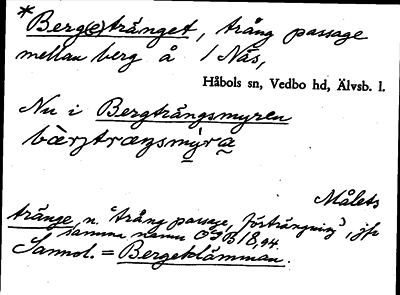 *Berg(e)trånget, trång passage
mellan berg å / Näs,
Håbols sn, Vedbo hd, Älvsb. l.
Nu i Bergtrångsmyren
Målets
trånge n. "trång passage, förträngning", jfr
samma namn OGB 18, 94.
Sannol. = Bergeklämman.